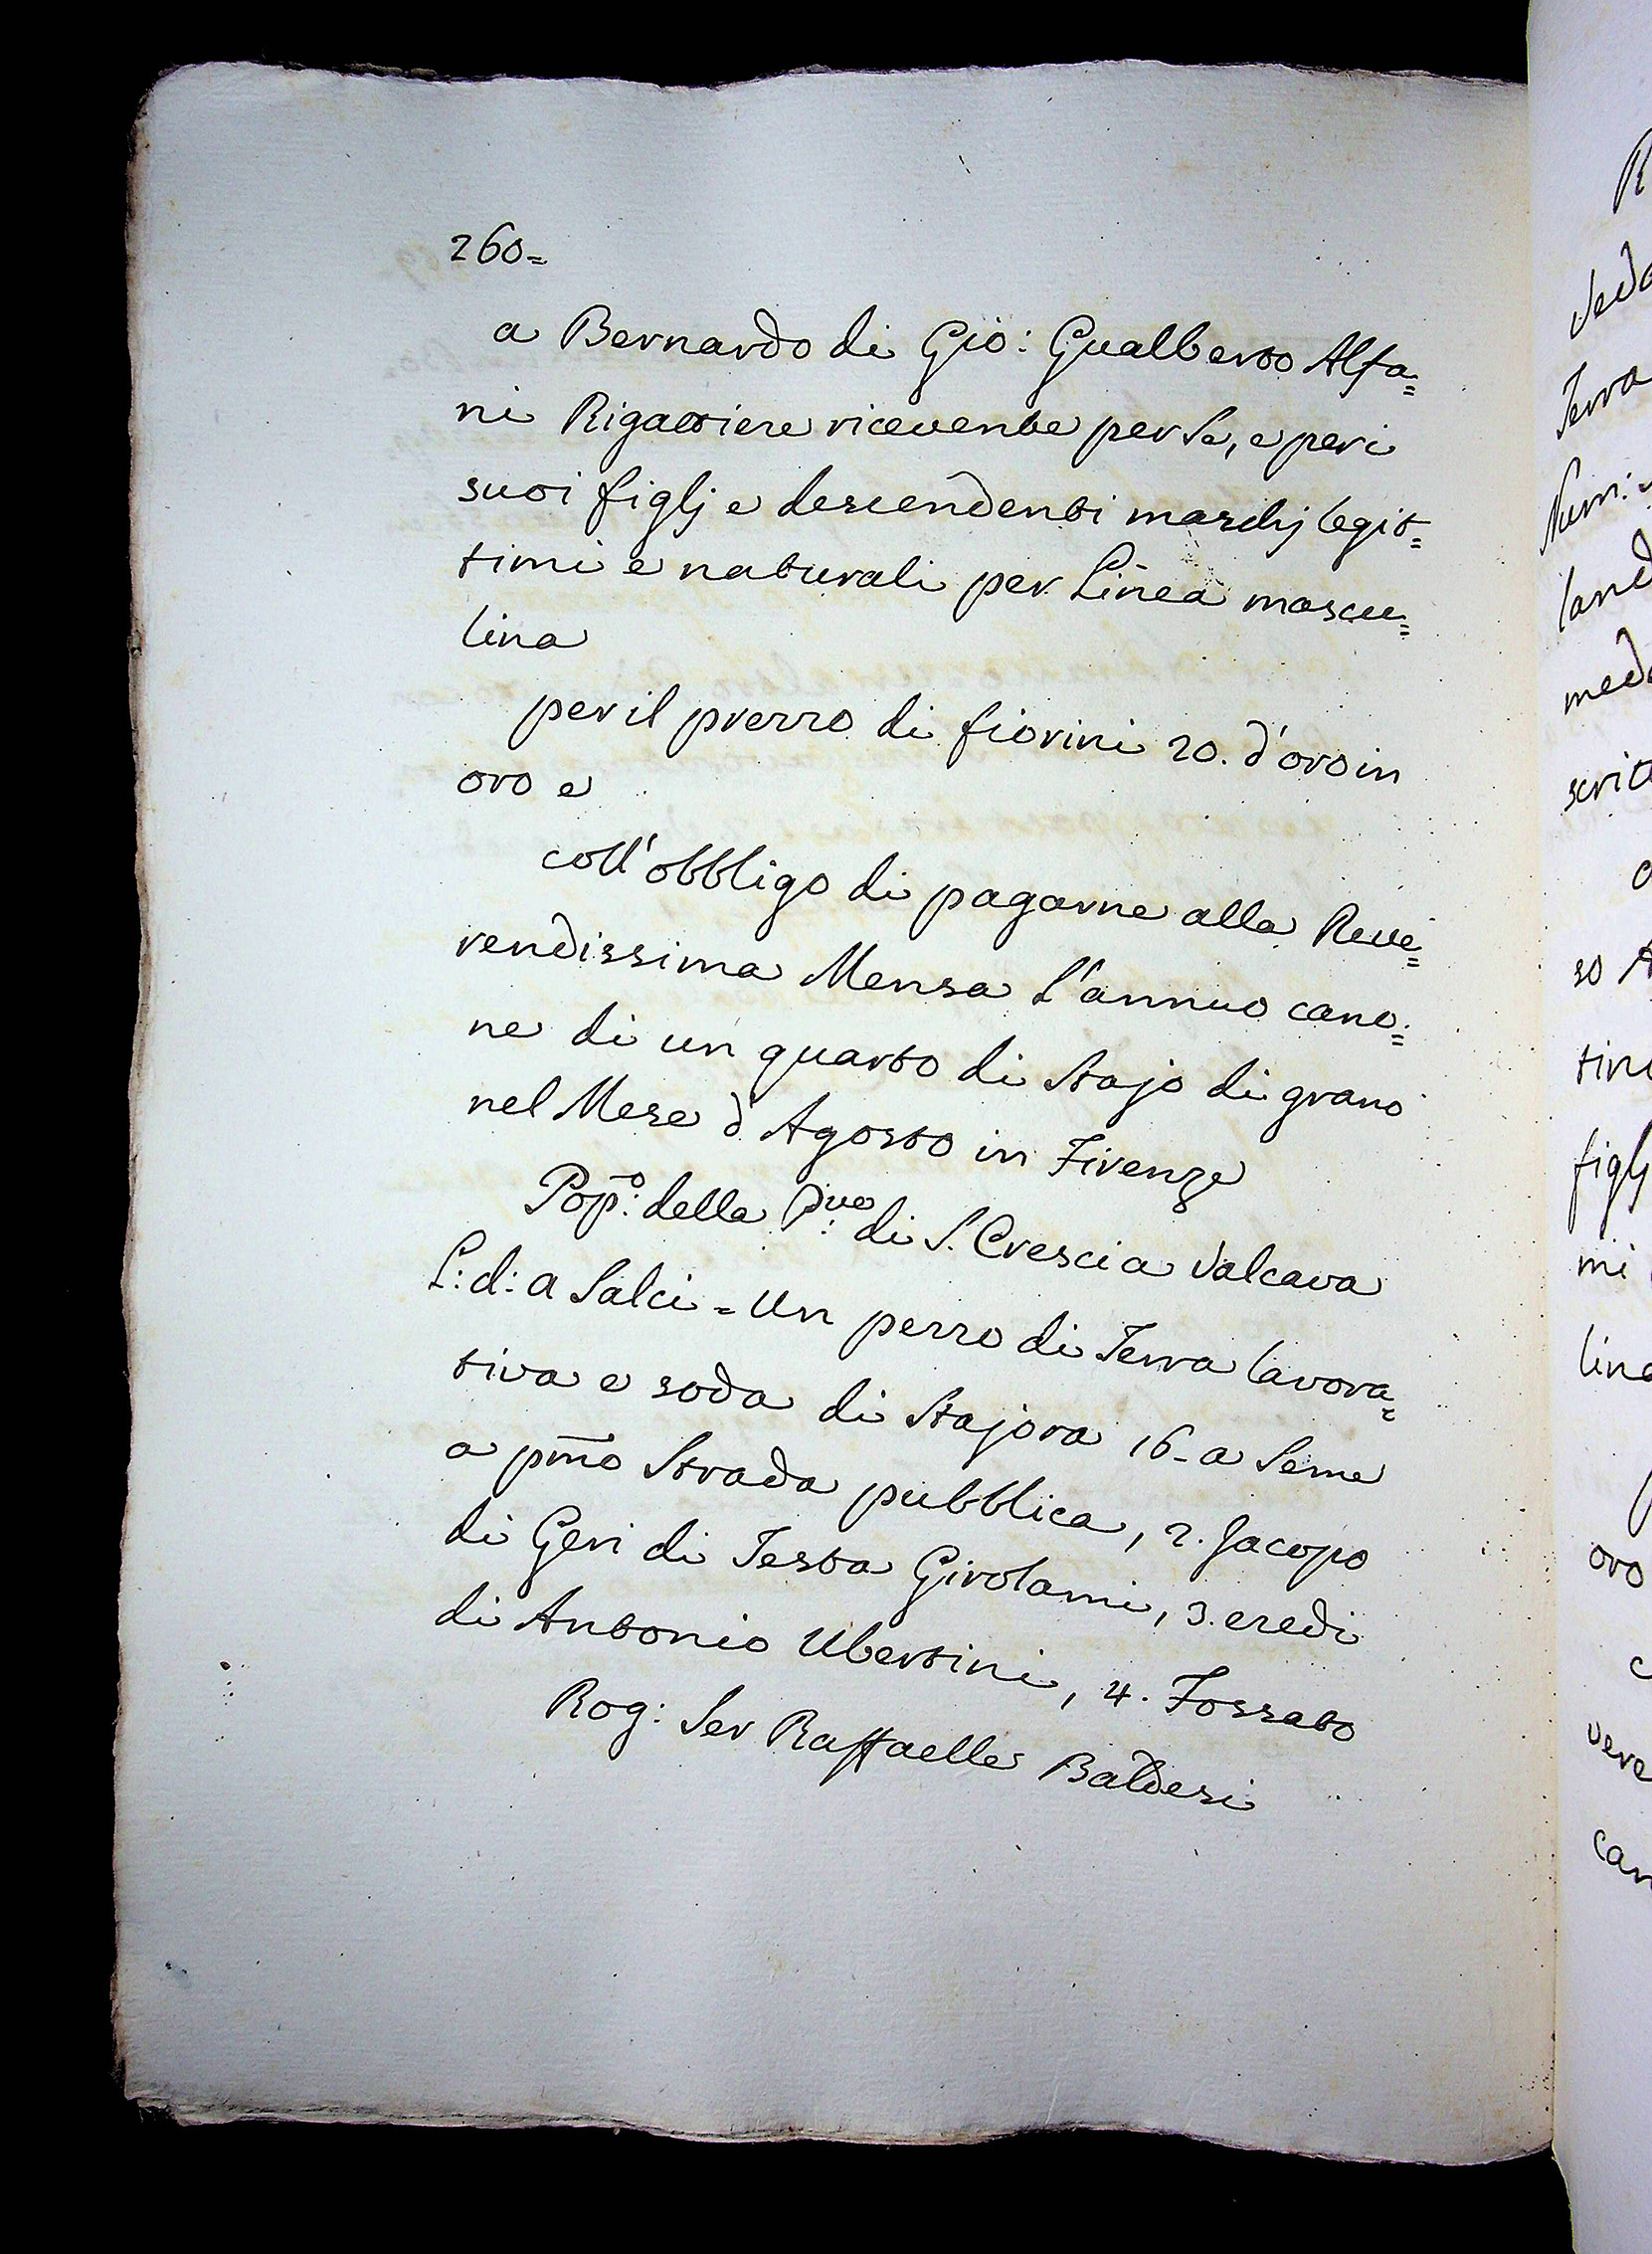 260=
a Bernardo di Gio: Gualberto Alfa=
ni Rigattiere ricevente per Se, e per i
suoi figlj e descendenti maschj legit=
timi e naturali per Linea mascu=
lina
per il prezzo di fiorini 20. d'oro in
oro e
coll'obbligo di pagarne alla Reve=
rendissima Mensa l'annuo cano=
ne di un quarto di Stajo di grano
nel Mese d'Agosto in Firenze
Pop.º: della Pve: di S. Crescia Valcava
L: d: a Salci = Un pezzo di Terra lavora=
tiva e soda di Stajora 16 - a Seme
a pmo Strada pubblica, 2. Jacopo
di Geri di Testa Girolami, 3. eredi
di Antonio Ubertini, 4. Fossato
Rog: Ser Raffaelle Baldesi
R
Terra
Num:
land
scritt
so A
tino
figlj
mi
oro
vere
can